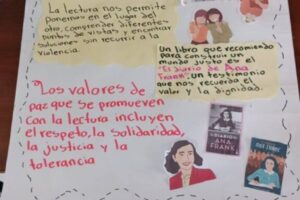 La lectura nos permite
ponernos en el lugar del
otro, comprender diferentes
puntos de vistas y encontrar
soluciones sin recurrir a la
violencia.
Un libro que recomiendo
para construir un
mundo justo es el
"El diario de Ana
Frank", un testimonio
que nos recuerda el
valor y la dignidad.
Los valores de
paz que se promueven
con la lectura incluyen
el respeto, la solidaridad,
la justicia y la
tolerancia
ANA
FRANK